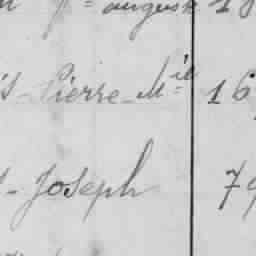 august 18
Pierre Mie 16
Joseph 79